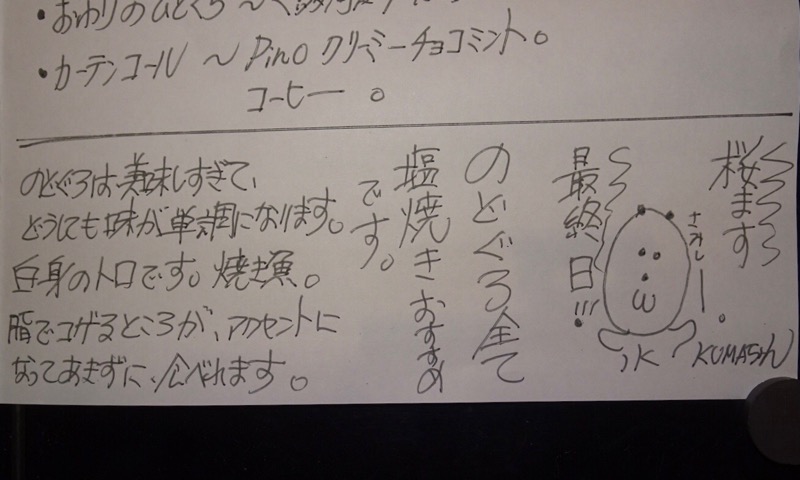 ・おわりのひとくち～
・カーテンコール ～ Pino クリーミーチョコミント。
コーヒー 。
桜ます
さみしー。
KUMAさん
最終日!!!
のどぐろ全て
塩焼きおすすめ
です。
のどぐろは美味しすぎて、
どうしても味が単調になります。
白身のトロです。焼き魚。
脂でコゲるところが、アクセントに
なってあきずに、食べれます。